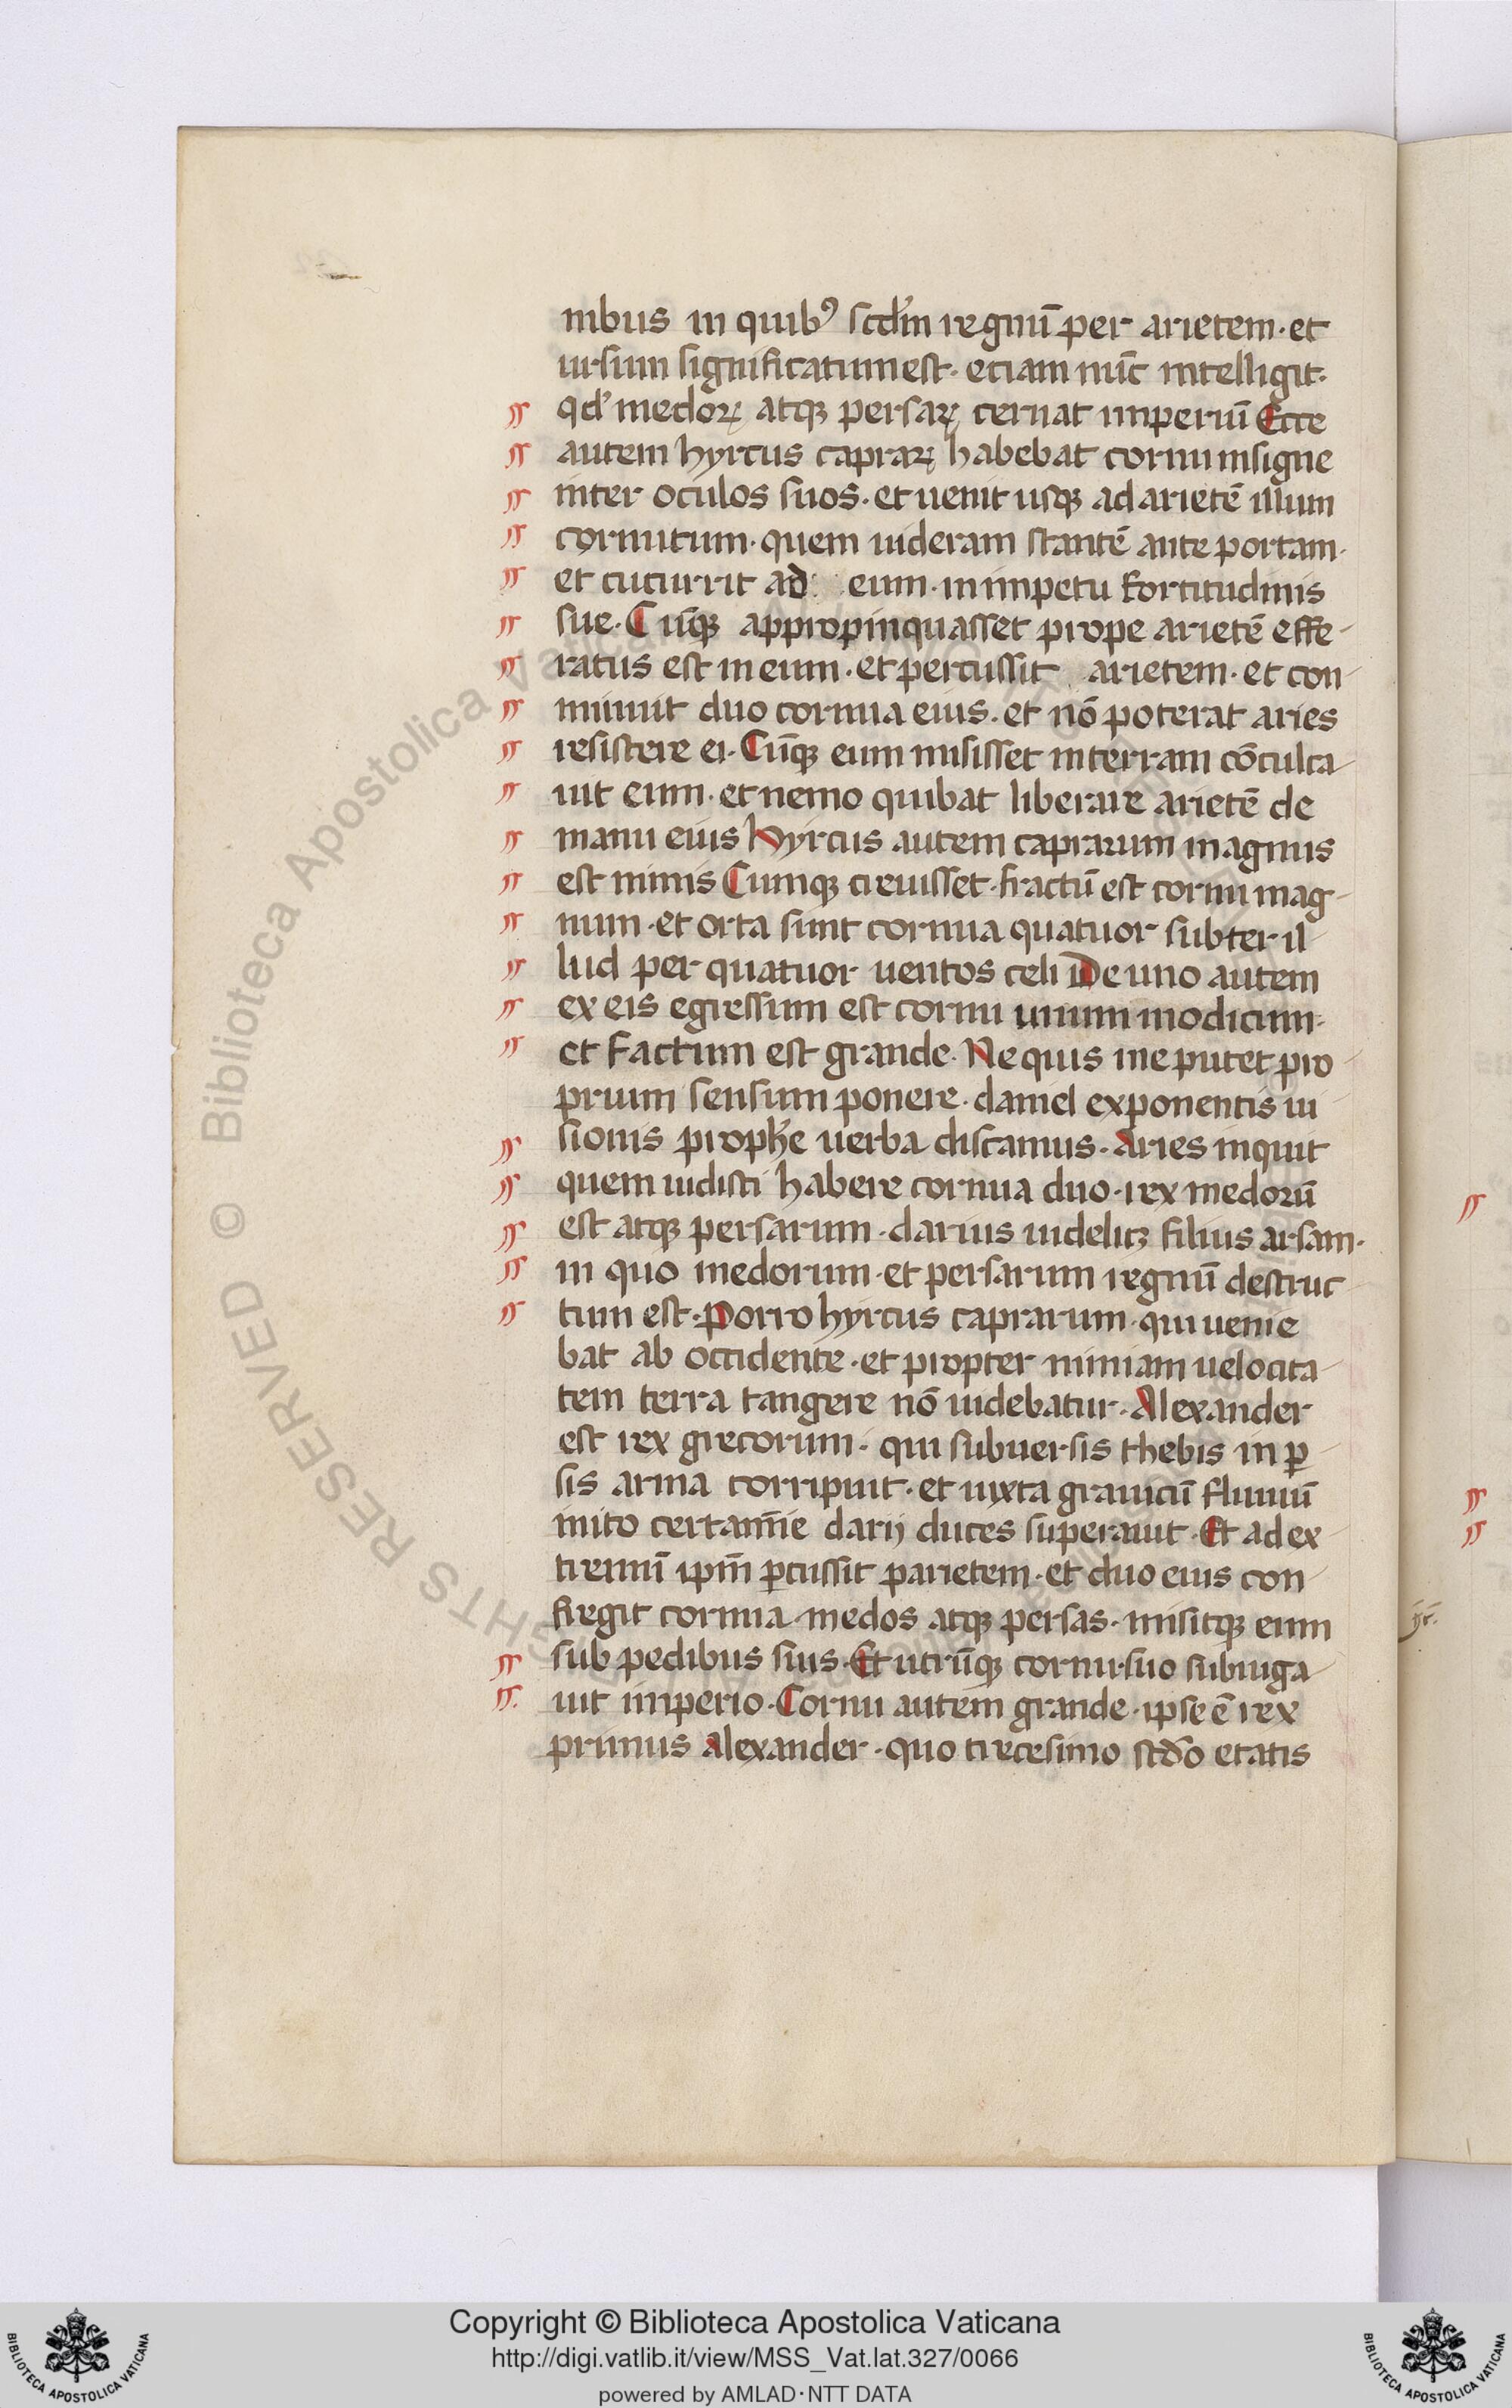 nibus in quibꝰ scd̕m regnū per arietem · et
ursum significatum est · etiam nūc intelligit ·
qd̕ medoꝝ atqꝫ persaꝝ cernat imperiū Ecce
autem hyrcus capraꝝ habebat cornu insigne
inter oculos suos · et uenit usqꝫ ad arietē illum
cornutum · quem uideram stantē ante portam ·
et cucurrit ad eum · in impetu fortitudinis
sue · Cūqꝫ appropinquasset prope arietē effe-
ratus est in eum · et percussit arietem · et con-
minuit duo cornua eius · et nō poterat aries
resistere ei · Cūqꝫ eum misisset in terram cōculca-
uit eum · et nemo quibat liberare arietē de
manu eius Hyrcus autem caprarum magnus
est nimis Cumqꝫ creuisset · fractū est cornu mag-
num · et orta sunt cornua quatuor subter il-
lud per quatuor uentos celi De uno autem
ex eis egressum est cornu unum modicum ·
et factum est grande · Ne quis me putet pro-
prium sensum ponere · daniel exponentis ui-
sionis prophē uerba discamus · Aries inquit
quem uidisti habere cornua duo · rex medorū
est atqꝫ persarum · darius uidelicꝫ filius arsam ·
in quo medorum · et persarum regnū destruc-
tum est · Porro hyrcus caprarum · qui uenie
bat ab occidente · et propter nimiam uelocita-
tem terra tangere nō uidebatur · Alexander
est rex grecorum · qui subuersis thebis in ꝑ-
sis arma corripuit · et iuxta granicū fluuiū
inito certamīe darij duces superauit · Et ad ex-
tremū ipm̄ ꝑcussit parietem · et duo eius con-
fregit cornua · medos atqꝫ persas · misitqꝫ eum
sub pedibus suis · Et utrūqꝫ cornu suo subiuga-
uit imperio · Cornu autem grande · ipse ē rex
primus Alexander · quo tricesimo scd̕o etatis
Copyright © Biblioteca Apostolica Vaticana
http://digi.vatlib.it/view/MSS_Vat.lat.327/0066
powered by AMLAD·NTT DATA